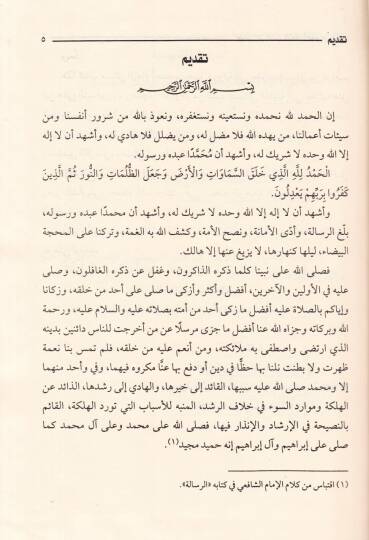 تقديم ٥
تقديم
بسم الله الرحمن الرحيم
إن الحمد لله نحمده ونستعينه ونستغفره، ونعوذ بالله من شرور أنفسنا ومن
سيئات أعمالنا، من يهده الله فلا مضل له، ومن يضلل فلا هادي له، وأشهد أن لا إله
إلا الله وحده لا شريك له، وأشهد أن مُحمَّدًا عبده ورسوله.
الْحَمْدُ لِلَّهِ الَّذِي خَلَقَ السَّمَاوَاتِ وَالْأَرْضَ وَجَعَلَ الظُّلُمَاتِ وَالنُّورَ ثُمَّ الَّذِينَ
كَفَرُوا بِرَبِّهِمْ يَعْدِلُونَ.
وأشهد أن لا إله إلا الله وحده لا شريك له، وأشهد أن محمدًا عبده ورسوله،
بلّغ الرسالة، وأدّى الأمانة، ونصح الأمة، وكشف الله به الغمة، وتركنا على المحجة
البيضاء، ليلها كنهارها، لا يزيغ عنها إلا هالك.
فصلى الله على نبينا كلما ذكره الذاكرون، وغفل عن ذكره الغافلون، وصلى
عليه في الأولين والآخرين، أفضل وأكثر وأزكى ما صلى على أحد من خلقه، وزكانا
وإياكم بالصلاة عليه أفضل ما زكى أحد من أمته بصلاته عليه والسلام عليه، ورحمة
الله وبركاته وجزاه الله عنا أفضل ما جزى مرسلًا عن من أخرجت للناس دائنين بدينه
الذي ارتضى واصطفى به ملائكته، ومن أنعم عليه من خلقه، فلم تمس بنا نعمة
ظهرت ولا بطنت نلنا بها حظًّا في دين أو دفع بها عنَّا مكروه فيهما، وفي وأحد منهما
إلا ومحمد صلى الله عليه سببها، القائد إلى خيرها، والهادي إلى رشدها، الذائد عن
الهلكة وموارد السوء في خلاف الرشد، المنبه للأسباب التي تورد الهلكة، القائم
بالنصيحة في الإرشاد والإنذار فيها، فصلى الله على محمد وعلى آل محمد كما
صلى على إبراهيم وآل إبراهيم إنه حميد مجيد(١).
(١) اقتباس من كلام الإمام الشافعي في كتابه «الرسالة».